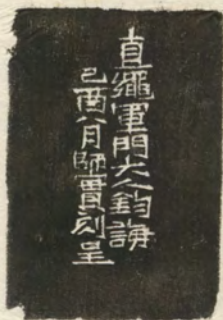 直繩軍門大人鈞誨
己酉八月師賈刻呈